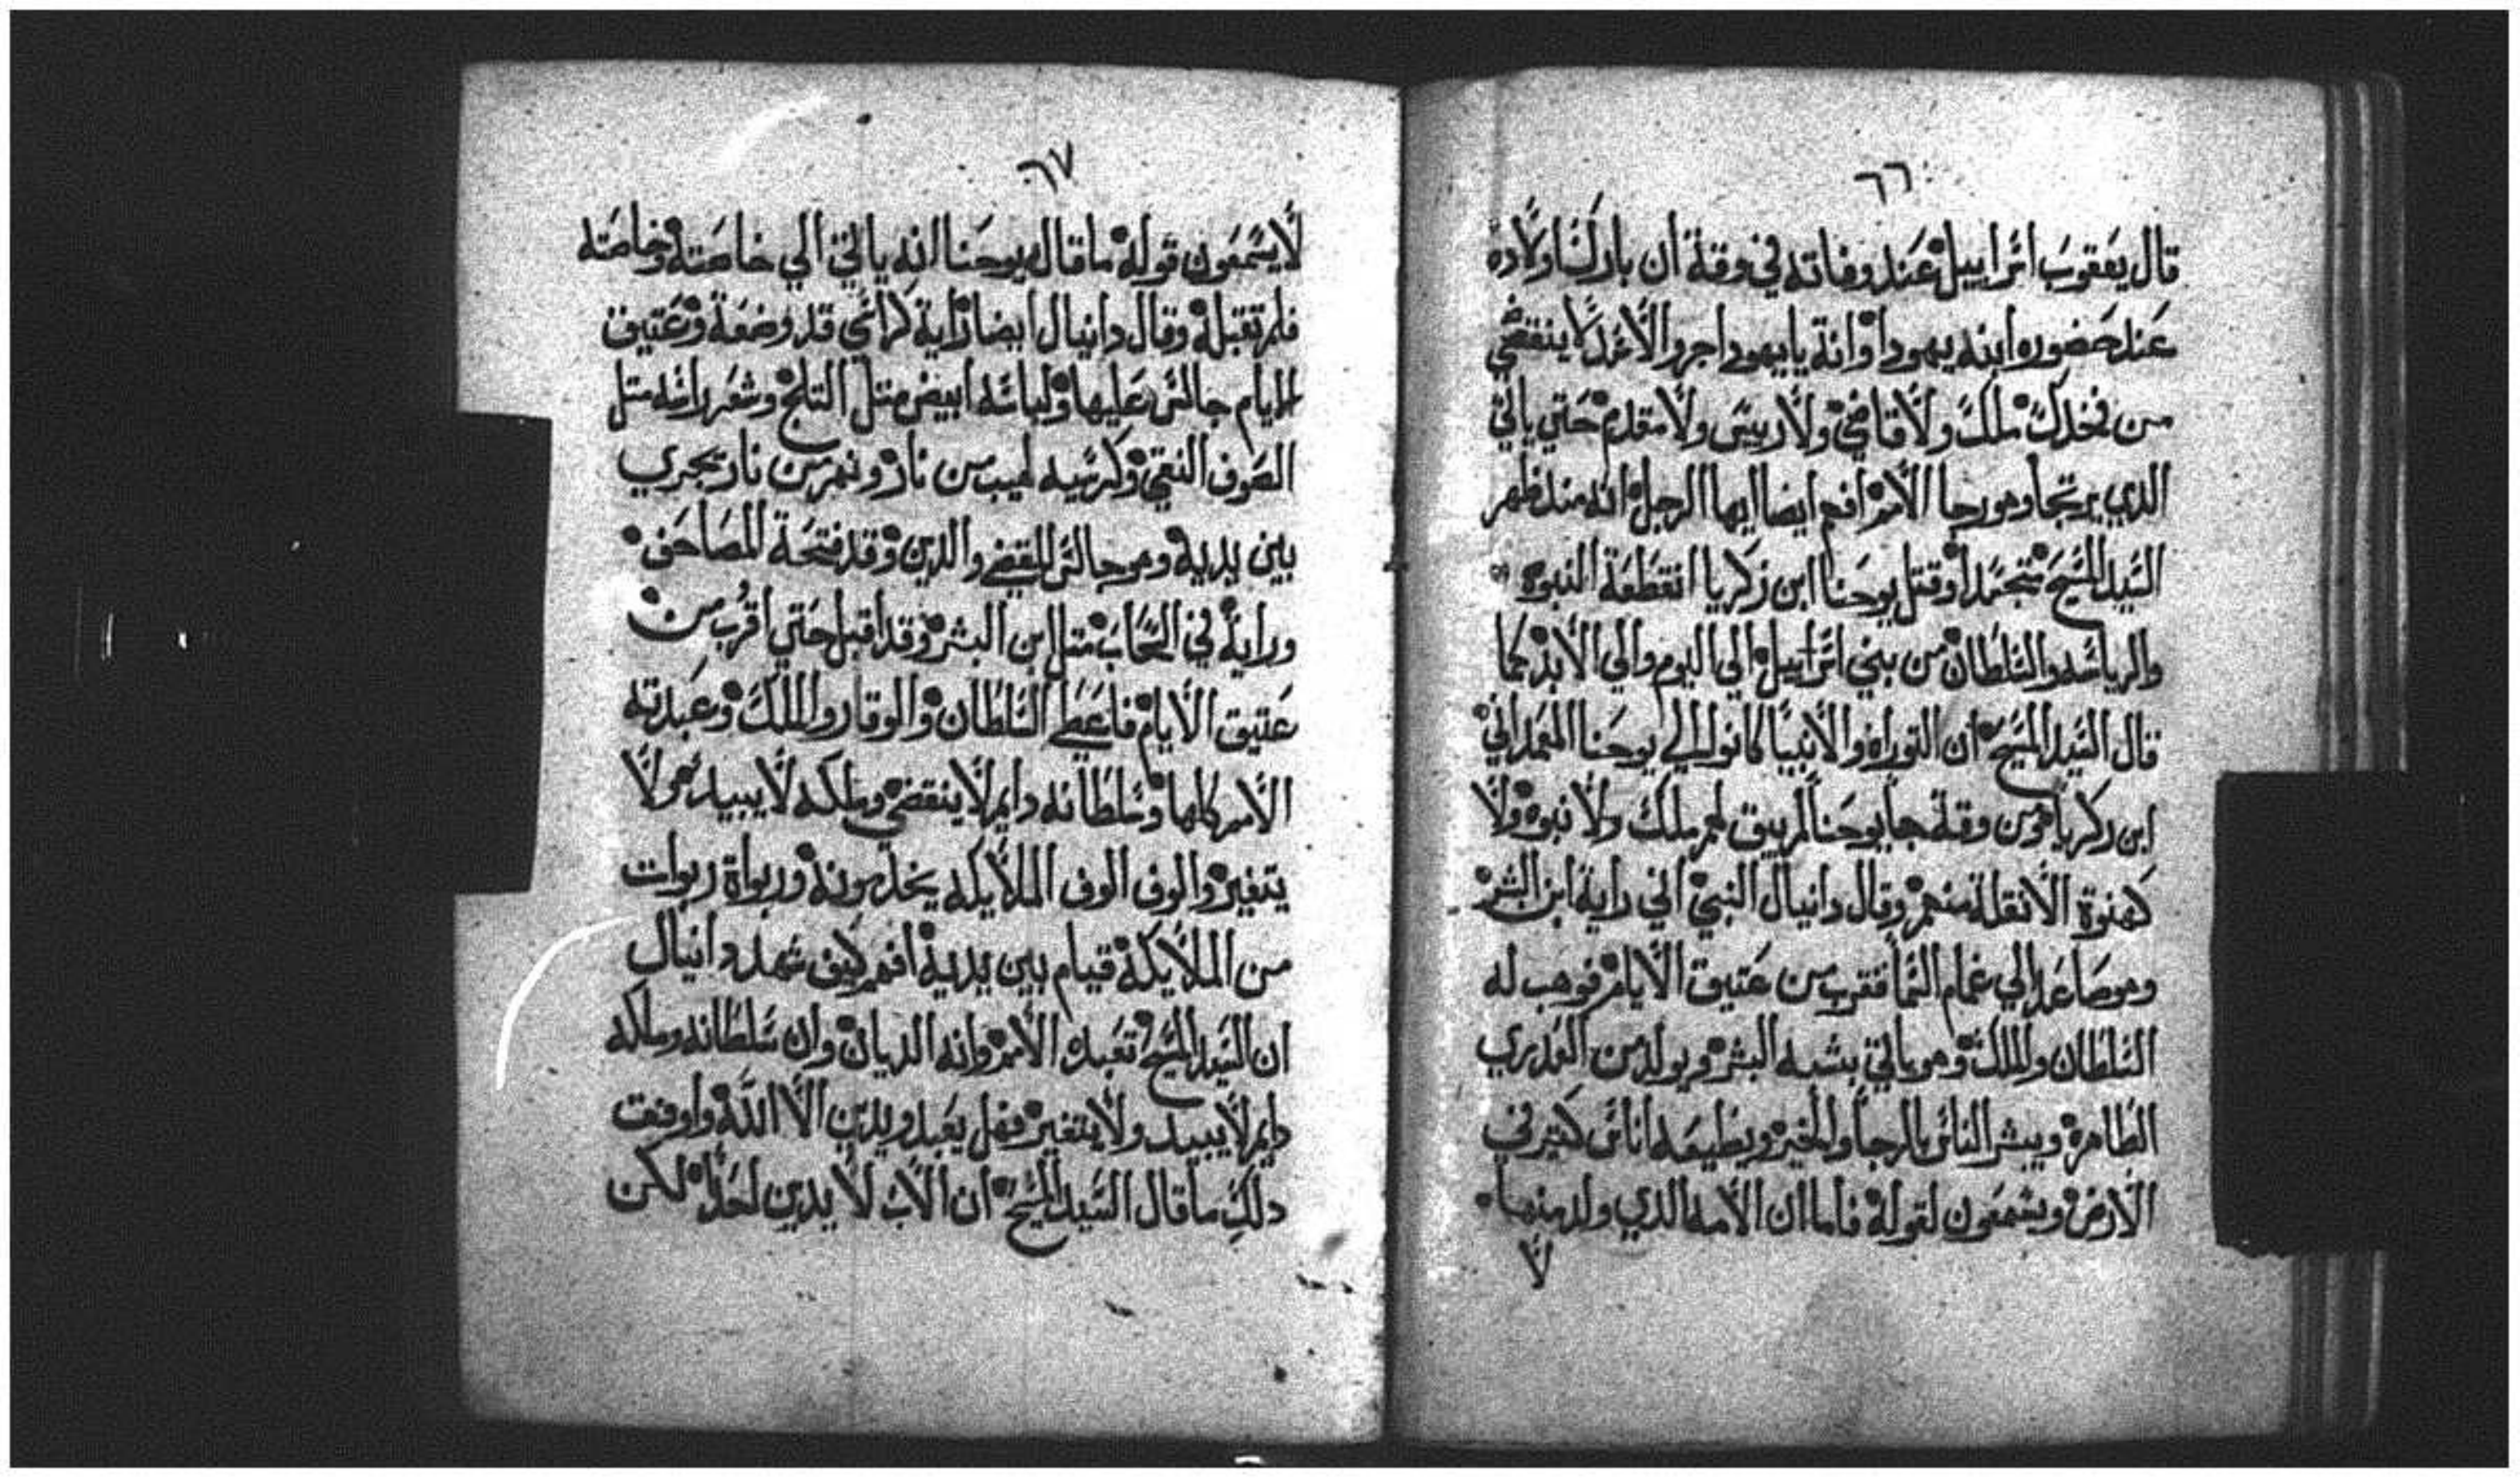 ٦٦
قال يعقوب اسراييل عند وفاته في وقة ان بارك اولاده
عند حضوره ابنه يهودا وانه يايهودا جرو الاسد لا ينقضي
من فخدك ملك ولا قاضي ولا رييس ولا مقدم حتي ياتي
الدي يرتجا وهو رجا الامم افهم ايضا ايها الرجل انه مند ظهر
السيد المسيح متجسدا وقتل يوحنا ابن زكريا انقطعة النبوه
والرياسه والسلطان من بني اسراييل الي اليوم والي الابد كما
قال السيد المسيح ان التوراه والانبيا كانوا الي يوحنا المعمداني
ابن زكريا فمن وقة جا يوحنا لم يبق لهم ملك ولا نبوه ولا
كهنوة الا نقلة منهم وقال دانيال النبي اني راية ابن البشر
وهو صاعد الي غمام السما فقرب من عتيق الايام فوهب له
السلطان والملك وهو ياتي بشبه البشر ويولد من العدري
الطاهره ويبشر الناس بالرجا والخير ويطيعه اناس كتير في
الارض ويسمعون لقوله فاما ان الامه الدي ولد منها
لا
٦٧
لا يسمعون قوله ما قال يوحنا انه ياتي الي خاصته وخاصته
فلم تقبله وقال دانيال ايضا راية كراسي قد وضعة وعتيق
الايام جالس عليها ولباسه ابيض متل التلج وشعر راسه متل
الصوف النقي وكرسيه لهيب من نار ونهر من نار تجري
بين يديه وهو جالس للقضي والدين وقد فتحة المصاحف
وراية في السحاب متل ابن البشر وقد اقبل حتي اقرب من
عتيق الايام فاعطي السلطان والوقار والملك وعبدته
الامم كلها وسلطانه دايم لا ينقضي وملكه لا يبيد هو لا
يتغير والوف الوف الملايكه يخدمونه وربواة ربوات
من الملايكة قيام بين يدية افهم كيف شهد دانيال
ان السيد المسيح تعبد الامم وانه الديان وان سلطانه وملكه
دايم لا يبيد ولا يتغير فهل يعبد ويدين الا الله واوفقت
دلك ما قال السيد المسيح ان الاب لا يدين احدا لكن